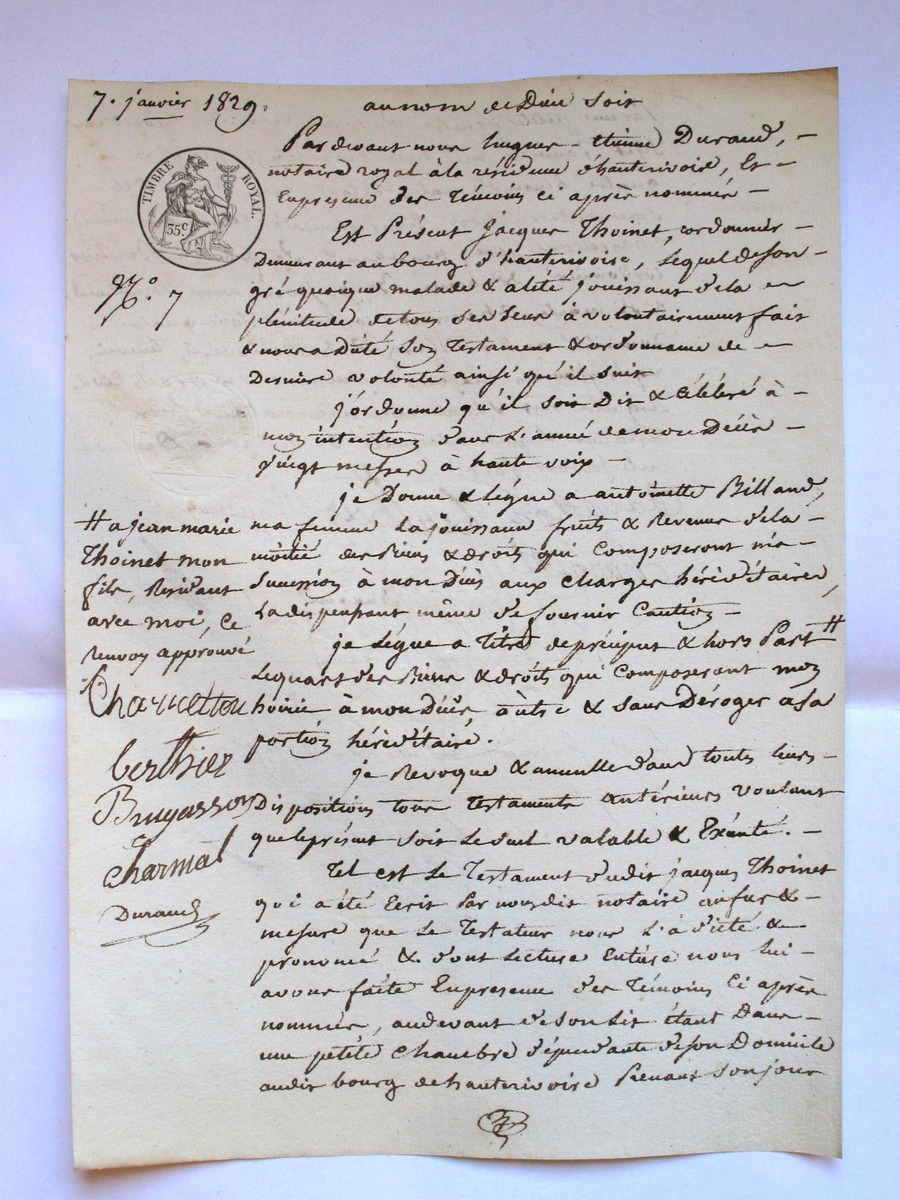 7. janvier 1829.
au nom de Dieu soit
TIMBRE ROYAL.
35c.
N.o 7
Pardevant nous hugues - étienne Durand, -
notaire royal à la résidence d'hauterivoire, Et -
En presence des Témoins ci après nommés -
Est Présent Jacques Thoinet, cordonnier -
Demeurant au bourg d'hauterivoire, Lequel de son -
gré quoique malade & alété jouissant de la
plénitude de tous ses sens à volontairement fait
& nous a Dicté Son Testament & ordonnance de -
Derniere volonté ainsi qu'il suit
j'ordonne qu'il soit Dit & Célébré à -
mon intention dans L'année de mon Décès -
vingt messes à haute voix -
je Donne & Légue a antoinette Billaud,
ma femme La jouissance fruits & Revenus de la -
moitié des Biens & droits qui Composeront ma -
Succession à mon Décès aux Charges héréditaires,
La dispensant même de fournir Caution -
je Légue a Titre de préciput & hors Part #
Le quart des Biens & droits qui Composeront mon
hoirie à mon Décès, outre & sans Déroger a Sa
portion héréditaire.
je Revoque & annulle dans toutes leurs -
Dispositions tous Testaments Antérieurs voulant
que le présent soit Le seul valable & Exécuté. -
Tel est Le Testament dudit jacques Thoinet
qui a été Ecrit Par nousdit notaire au fur & -
mesure que Le Testateur nous L'à dicté &
prononcé & dont Lecture Entière nous lui -
avons faite En presence des Témoins Ci après
nommés, au devant de son Lit étant Dans -
une petite Chambre dépendante de son Domicile
audit bourg de hauterivoire Prenant Son jour
# a jean marie
Thoinet mon
fils, Résidant
avec moi, Ce
Renvoy approuvé
berthier
Charmet
Durand